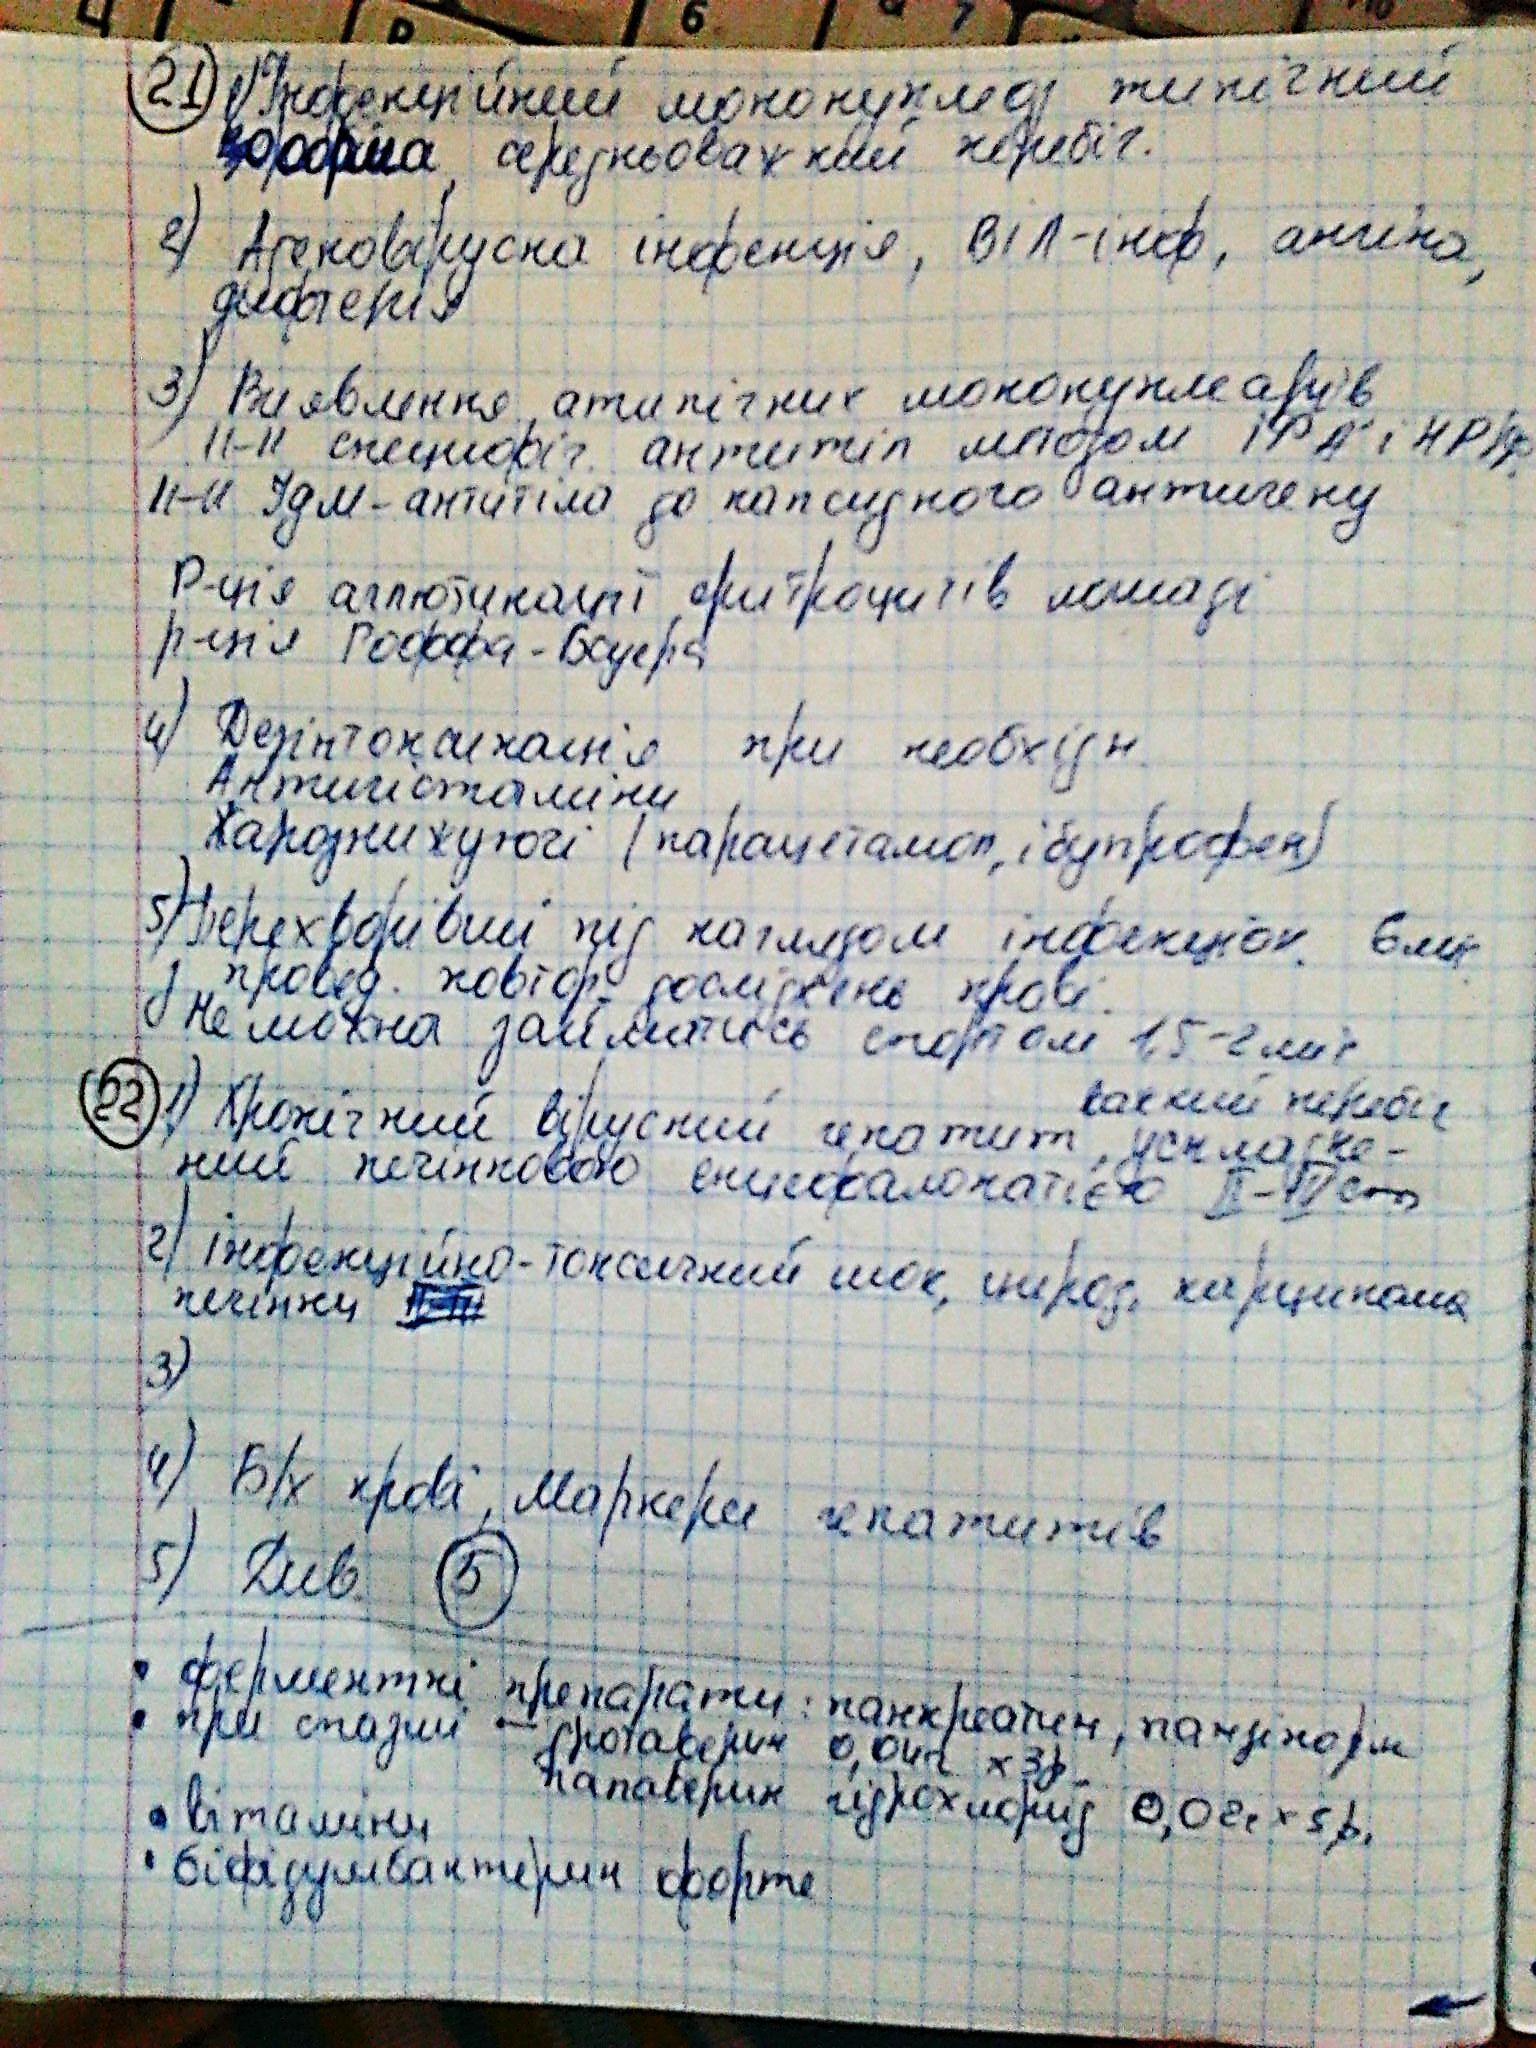 21 1) Інфекційний мононуклеоз типічний
форма, середньоважкий перебіг.
2) Аденовірусна інфекція, ВІЛ-інф, ангіна,
дифтерія
3) Виявлення атипічних мононуклеарів
11-11 специфіч. антитіл методом ІФА і НРІФ
11-11 IgM-антитіла до капсидного антигену
Р-ція аглютинації еритроцитів лошаді
р-ція Гоффа-Бауера
4) Дезінтоксикація при необхідн.
Антигістаміни
Жарознижуючі (парацетамол, ібупрофен)
5) Перехворівший під наглядом інфекціон. 6 міс
провед. повтор. досліджень крові.
Не можна займатись спортом 1,5-2 міс
важкий перебіг
22 1) Хронічний вірусний гепатит, ускладне-
ний печінковою енцефалопатією
2) інфекційно-токсичний шок, цироз, карцинома
печінки
3)
4) Б/х крові, Маркери гепатитів
5) Див. 5
• ферментні препарати: панкреатин, панзінорм
• при спазмі - дротаверин 0,04г х 3р.
папаверин гідрохлорид 0,02г х 5р.
• вітаміни
• біфідумбактерин форте